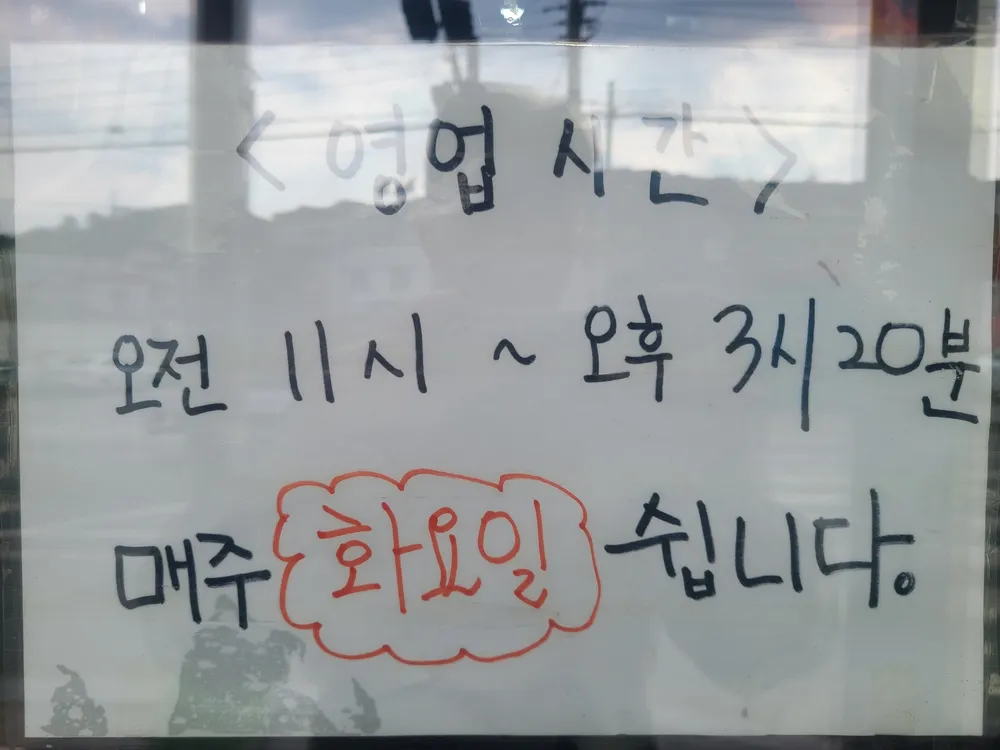 <영업 시간>
오전 11시 ~ 오후 3시 20분
매주 화요일 쉽니다.